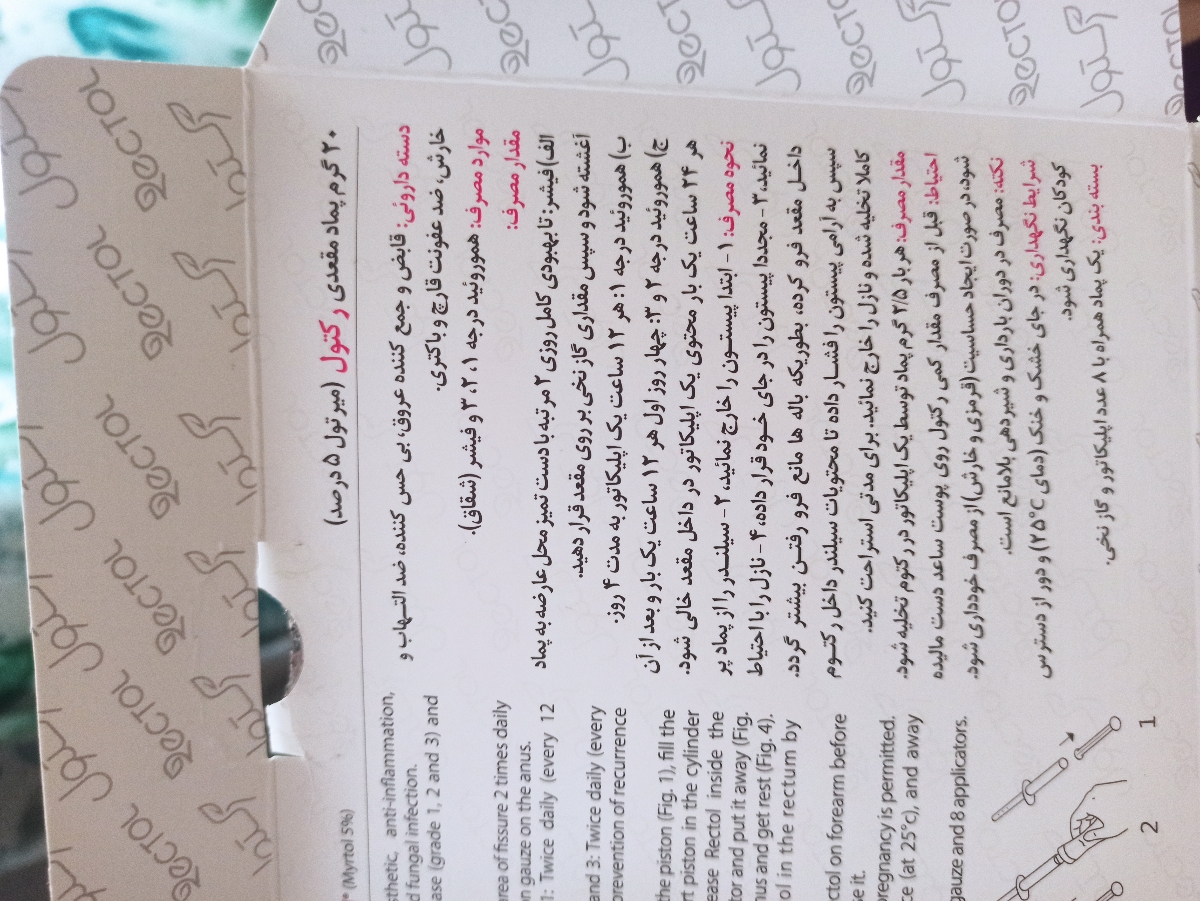 ۲۰ گرم پماد مقعدی رکتول (میرتول ۵ درصد)
دسته داروئی: قابض و جمع کننده عروق، بی حس کننده، ضد التهاب و
خارش، ضد عفونت قارچ و باکتری.
موارد مصرف: هموروئید درجه ۱، ۲، ۳ و فیشر (شقاق).
مقدار مصرف:
الف) فیشر: تا بهبودی کامل روزی ۲ مرتبه با دست تمیز محل عارضه به پماد
آغشته شود و سپس مقداری گاز نخی بر روی مقعد قرار دهید.
ب) هموروئید درجه ۱: هر ۱۲ ساعت یک اپلیکاتور به مدت ۴ روز.
ج) هموروئید درجه ۲ و ۳: چهار روز اول هر ۱۲ ساعت یک بار و بعد از آن
هر ۲۴ ساعت یک بار محتوی یک اپلیکاتور در داخل مقعد خالی شود.
نحوه مصرف: ۱- ابتدا پیستون را خارج نمائید، ۲- سیلندر را از پماد پر
نمائید، ۳- مجددا پیستون را در جای خود قرار داده، ۴- نازل را با احتیاط
داخل مقعد فرو کرده، بطوریکه باله ها مانع فرو رفتن بیشتر گردد.
سپس به آرامی پیستون را فشار داده تا محتویات سیلندر داخل رکتوم
کاملا تخلیه شده و نازل را خارج نمائید. برای مدتی استراحت کنید.
مقدار مصرف: هر بار ۲/۵ گرم پماد توسط یک اپلیکاتور در رکتوم تخلیه شود.
احتیاط: قبل از مصرف مقدار کمی رکتول روی پوست ساعد دست مالیده
شود، در صورت ایجاد حساسیت (قرمزی و خارش) از مصرف خودداری شود.
نکته: مصرف در دوران بارداری و شیردهی بلامانع است.
شرایط نگهداری: در جای خشک و خنک (دمای ۲۵°C) و دور از دسترس
کودکان نگهداری شود.
بسته بندی: یک پماد همراه با ۸ عدد اپلیکاتور و گاز نخی.
(Myrtol 5%)
sthetic, anti-inflammation,
d fungal infection.
ase (grade 1, 2 and 3) and
area of fissure 2 times daily
on gauze on the anus.
1: Twice daily (every 12
and 3: Twice daily (every
prevention of recurrence
the piston (Fig. 1), fill the
rt piston in the cylinder
ease Rectol inside the
tor and put it away (Fig.
nus and get rest (Fig. 4).
ol in the rectum by
ctol on forearm before
se it.
pregnancy is permitted.
ce (at 25°c), and away
gauze and 8 applicators.
1
2
RECTOL رکتول
RECTOL رکتول
RECTOL رکتول
RECTOL رکتول